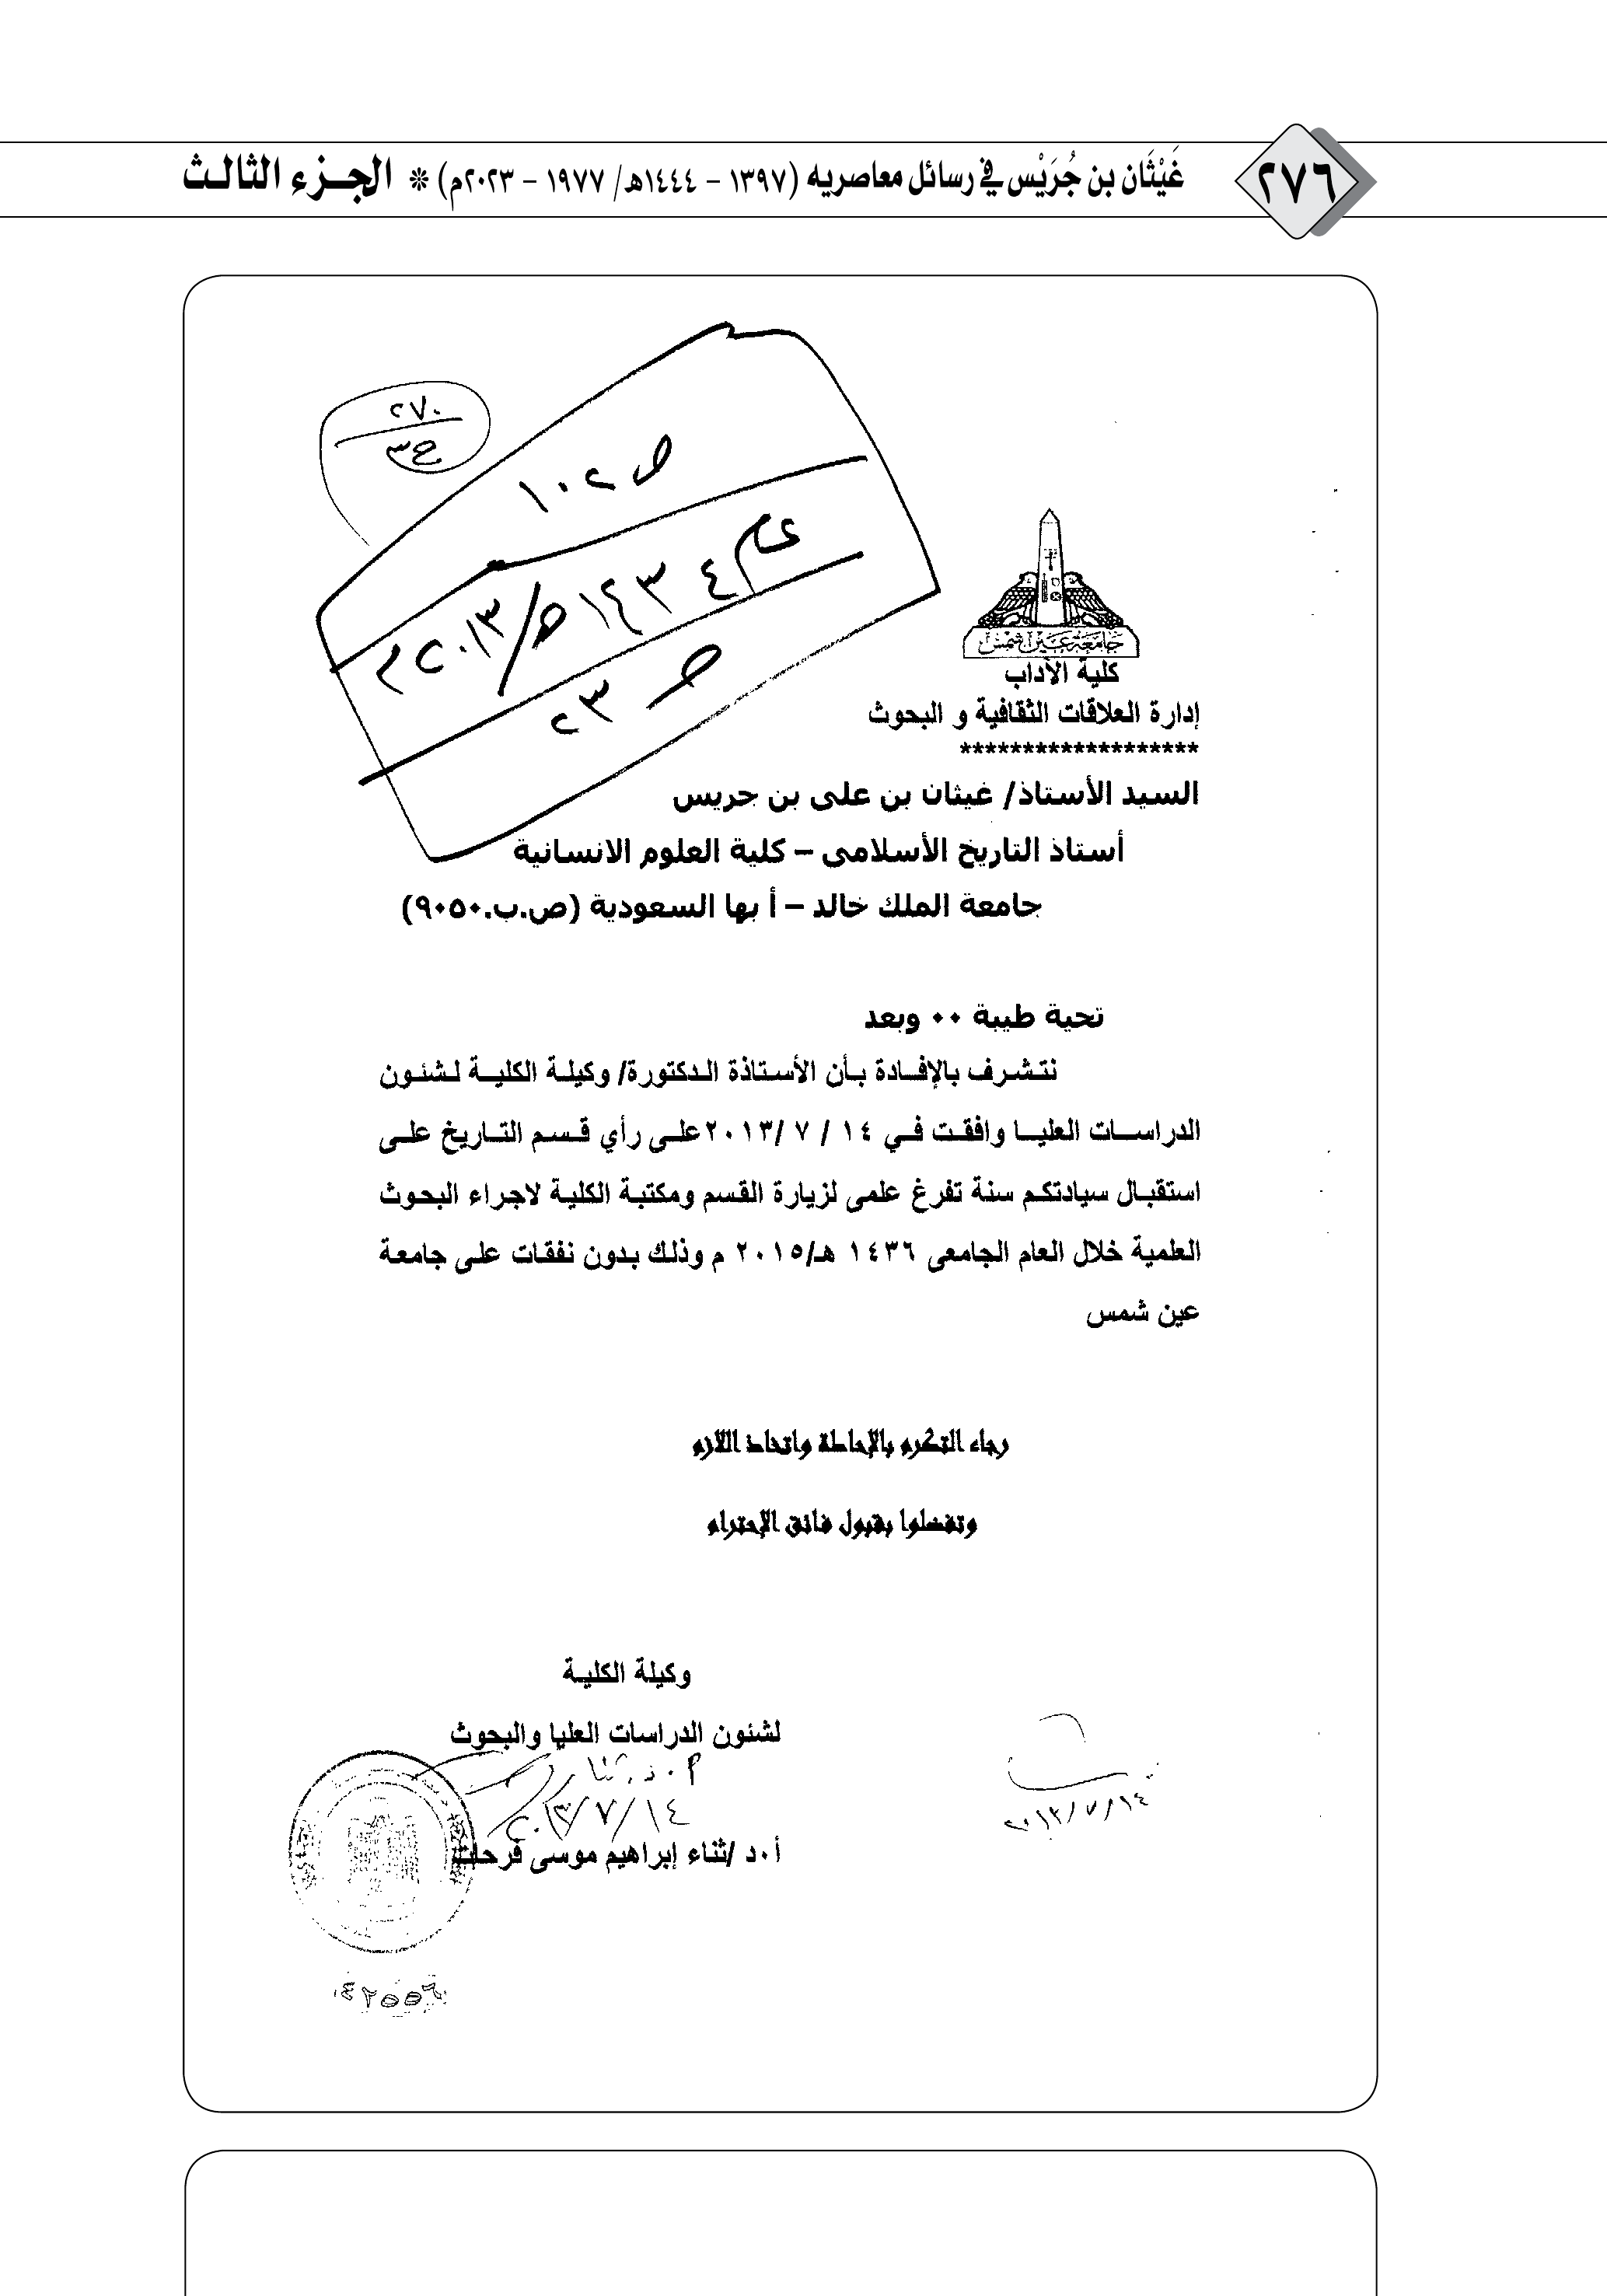 ٢٧٦ غَيْثَان بن جُرَيْس في رسائل معاصريه (١٣٩٧ – ١٤٤٤هـ/ ١٩٧٧ – ٢٠٢٣م) * الجـزء الثالـث
٢٧٠
ج٣
ص ١٠٢
عام ١٤٣٤هـ/٢٠١٣م
ص ٢٣
جامعة عين شمس
كلية الآداب
إدارة العلاقات الثقافية و البحوث
*******************
السيد الأستاذ/ غيثان بن على بن جريس
أستاذ التاريخ الأسلامى – كلية العلوم الانسانية
جامعة الملك خالد – أ بها السعودية (ص.ب.٩٠٥٠)
تحية طيبة ٠٠ وبعد
نتشرف بالإفادة بأن الأستاذة الدكتورة/ وكيلة الكلية لشئون
الدراسات العليا وافقت في ١٤ / ٧ /٢٠١٣ على رأي قسم التاريخ على
استقبال سيادتكم سنة تفرغ علمى لزيارة القسم ومكتبة الكلية لاجراء البحوث
العلمية خلال العام الجامعى ١٤٣٦ هـ/٢٠١٥ م وذلك بدون نفقات على جامعة
عين شمس
رجاء التكرم بالإحاطة واتخاذ اللازم
وتفضلوا بقبول فائق الإحترام
وكيلة الكلية
لشئون الدراسات العليا والبحوث
١٤/٧/٢٠١٣
أ٠د /ثناء إبراهيم موسى فرحات
٢٠١٣/٧/١٤